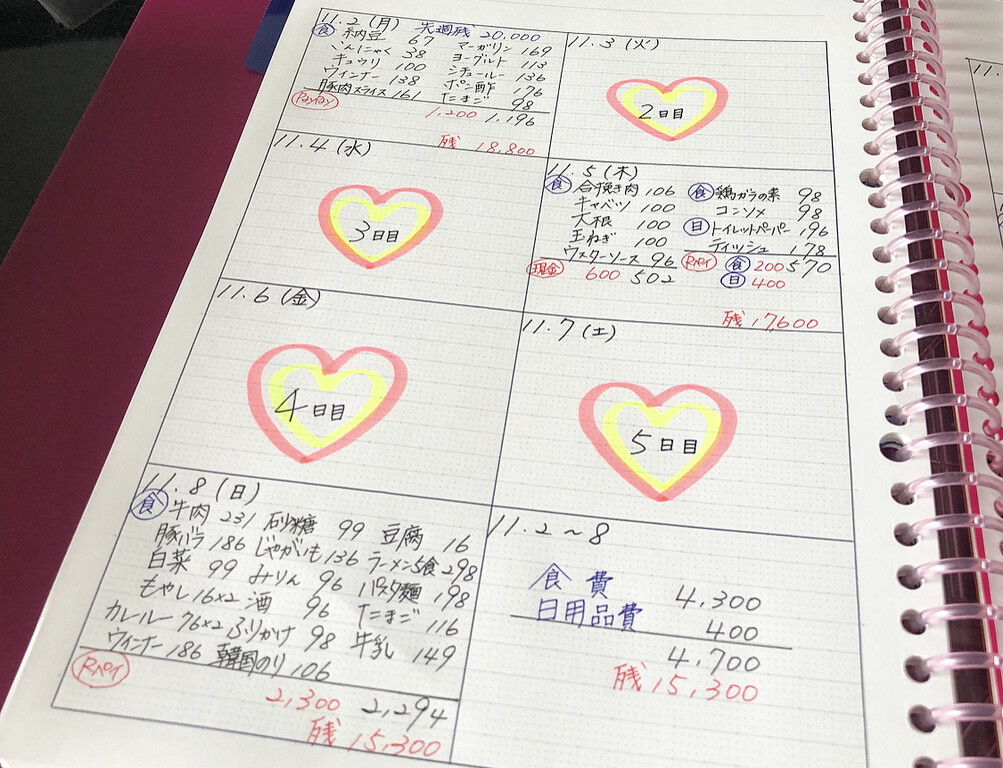 11.2 (月) 先週残 20,000
食 納豆 67 マーガリン 169
こんにゃく 38 ヨーグルト 113
キュウリ 100 シチュールー 136
ウィンナー 138 ポン酢 176
豚肉スライス 161 たまご 98
PayPay 1,200 1,196
残 18,800
11.3 (火)
2日目
11.4 (水)
3日目
11.5 (木)
食 合挽き肉 106 食 鶏ガラの素 98
キャベツ 100 コンソメ 98
大根 100 日 トイレットペーパー 196
玉ねぎ 100 ティッシュ 178
ウスターソース 96
現金 600 502 Rペイ 食 200 570
日 400
残 17,600
11.6 (金)
4日目
11.7 (土)
5日目
11.8 (日)
食 牛肉 231 砂糖 99 豆腐 16
豚バラ 186 じゃがいも 136 ラーメン5食 298
白菜 99 みりん 96 パスタ麺 198
もやし 16×2 酒 96 たまご 116
カレールー 76×2 ふりかけ 98 牛乳 149
ウィンナー 186 韓国のり 106
Rペイ
2,300 2,294
残 15,300
11.2～8
食費 4,300
日用品費 400
4,700
残 15,300
11.